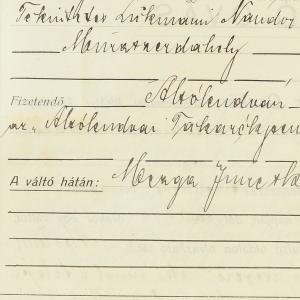 Tekintetes Lukmann Nándor
Muraszerdahely
Fizetendő Alsólendván
pr. Alsólendvai Takarékpén
A váltó hátán: Mezga Imre